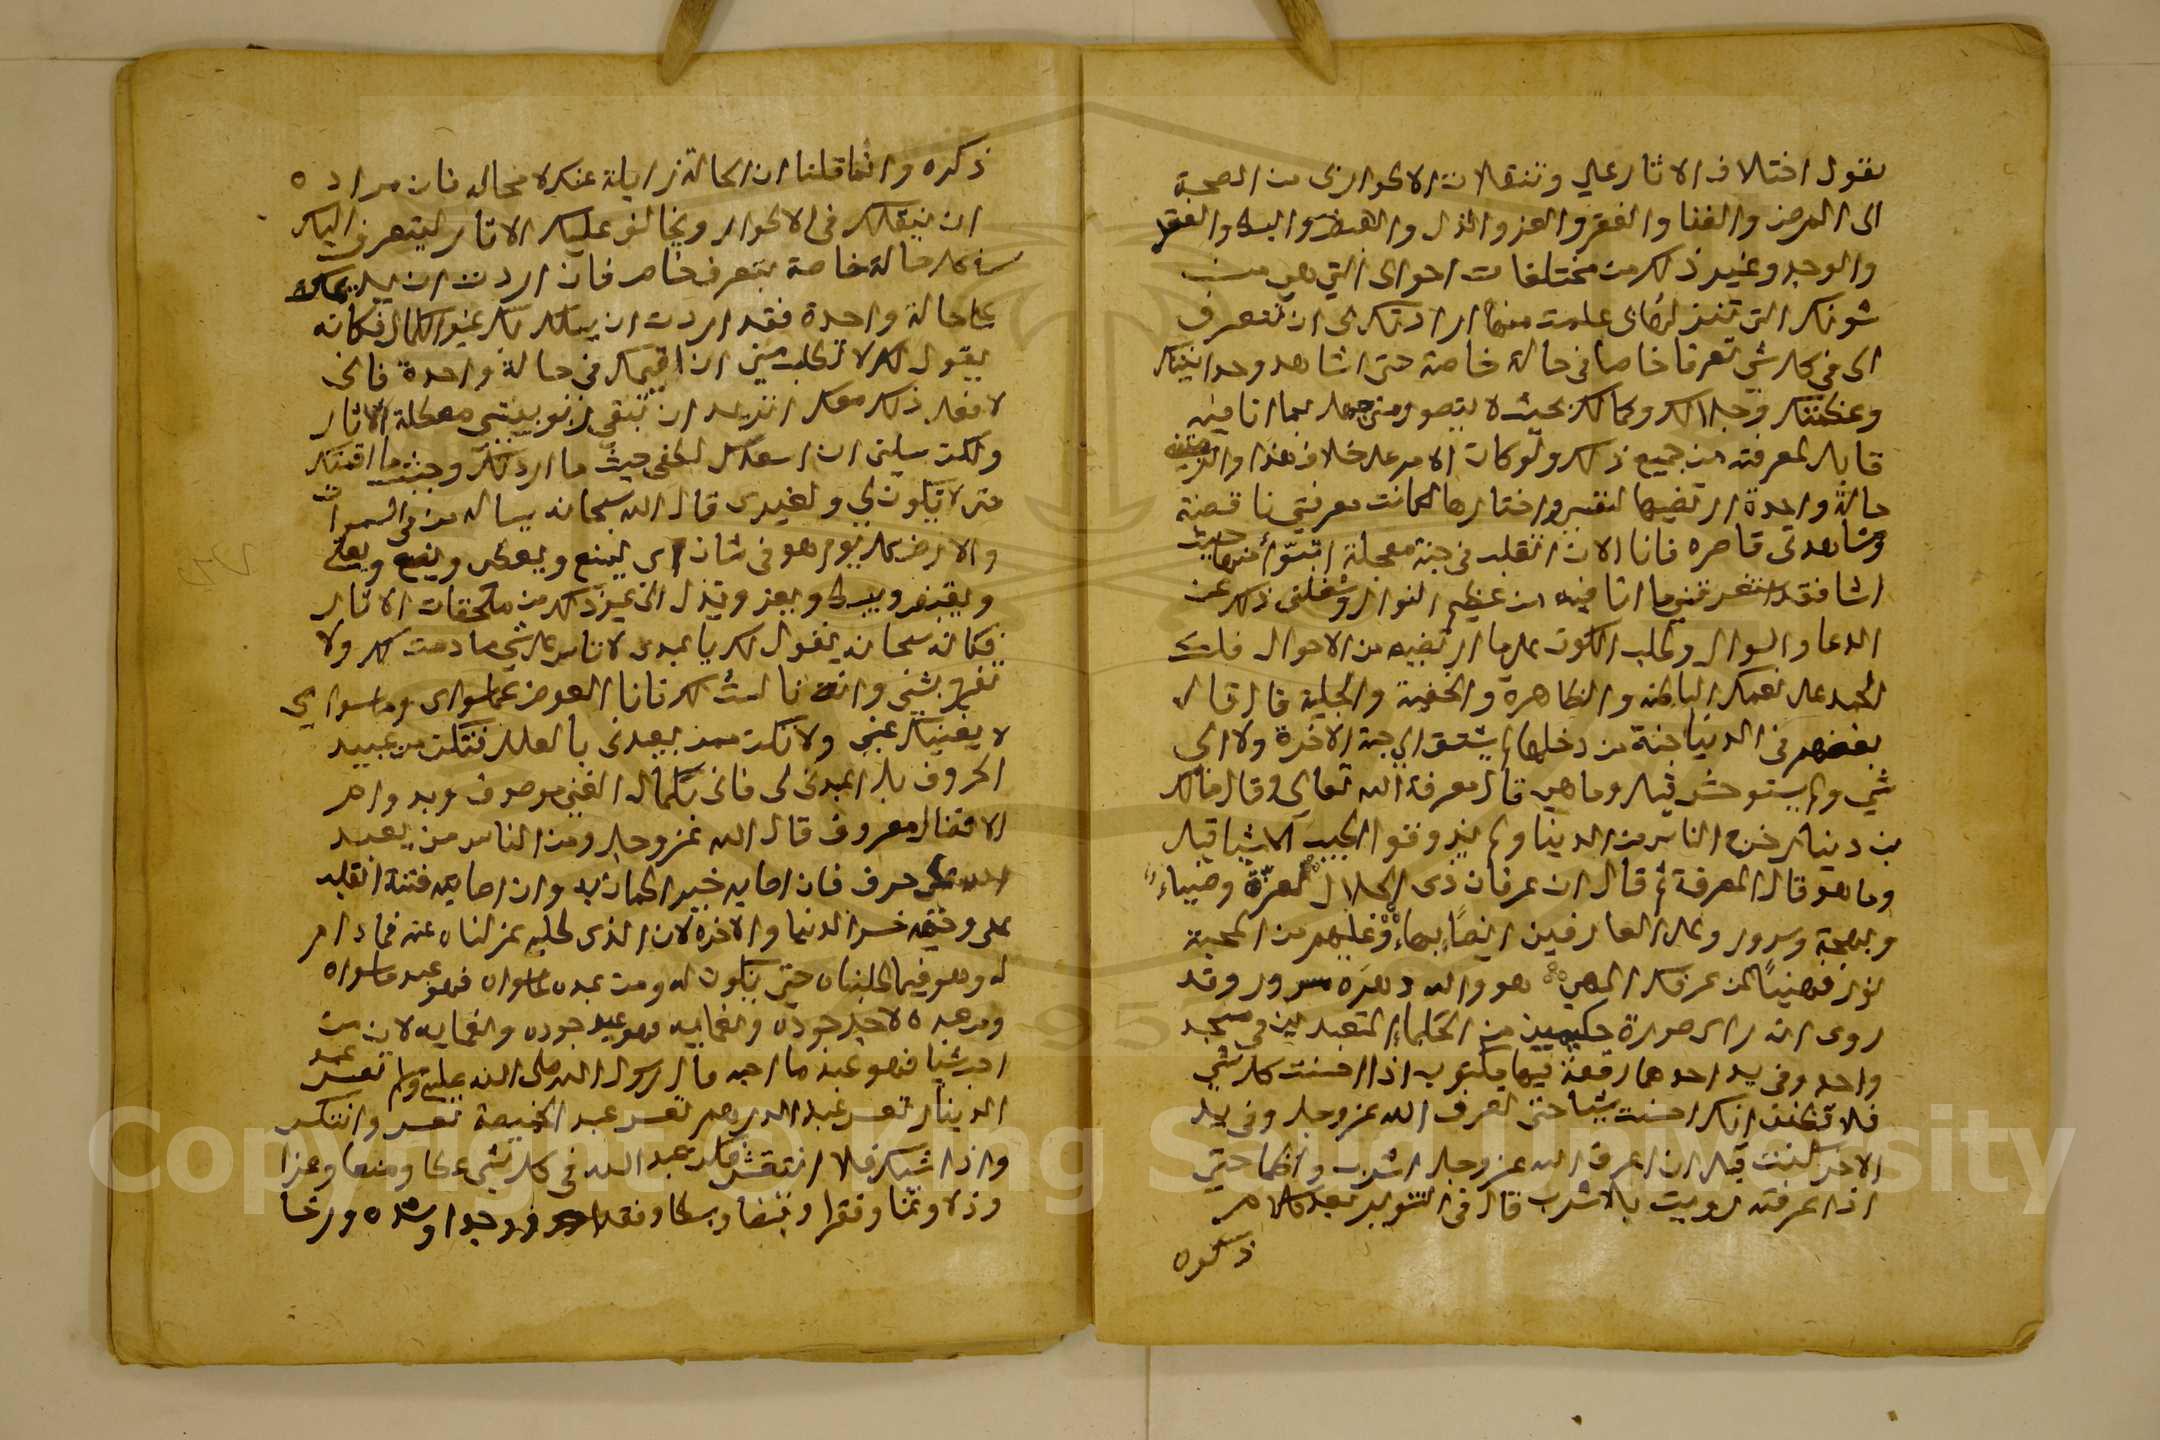 يقول اختلاف الاثار علي وتنقلات الاطوار بي من الصحة
الى المرض والغنا والفقر والعز والذل والقبض والبسط والفقد
والوجد وغير ذلك من مختلفات احوالى التي هي من
شونك التى تنزلها لى علمت منها ارادتك لى ان تتعرف
الى في كل شي تعرفا خاصا في حالة خاصة حتى اشاهد وحدانيتك
وعظمتك وجلالك وكمالك بحيث لا يتصور مني جهل بما انا فيه
قابل لمعرفته من جميع ذلك ولو كان الامر على خلاف هذا والزمتني
حالة واحدة ارتضيها لنفسي واختارها لكانت معرفتي ناقصة
ومشاهدتى قاصره فانا الان اتقلب في جنة معجلة اتبوّأ منها حيث
اشا فقد ما انا فيه من عظيم النوال وشغلني ذلك عن
الدعا والسوال وطلب الكون على ما ارتضيه من الاحوال فلك
الحمد على نعمك الباطنه والظاهرة والخفية والجلية قال قال
بعضهم في الدنيا جنة من دخلها لم يشتق الى جنة الاخرة ولا الى
شي ولم يستوحش قيل وما هي قال معرفة الله تعالى وقال مالك
بن دينار خرج الناس من الدنيا ولم يذوقوا اطيب الاشيا قيل
وما هو قال المعرفة ثم قال ان عرفان ذى الجلال لعزّة وضياءً
وبهجة وسرور وعلى العارفين ايضاً بهاءٌ وعليهم من المحبة
نور فهنيئاً لمن عرفك الهي هو والله دهرَه مسرور وقد
روى انه راى صورة حكيمين من الحكماء المتعبدين في مسجد
واحد وفي يد احدهما رقعة فيها مكتوب اذا احسنت كل شي
فلا تظنن انك احسنت شيا حتى تعرف الله عز وجل وفي يد
الاخر كنت قبل ان اعرف الله عز وجل اشرب واظما حتى
اذا عرفته رويت بلا شرب قال في التنوير بعد كلام
ذكره
ذكره وانما قلنا ان الحالة زايلة عنك لا محاله فان مراده
ان ينقلك في الاطوار ويخالف عليك الاثار ليتعرف اليك
في كل حالة خاصة بتعرف خاص فان اردت ان يديمك
على حالة واحدة فقد اردت ان يسلك بك غير الكمال فكانه
يقول لك لا تطلب مني ان اقيمك في حالة واحدة فانى
لا افعل ذلك معك اتريد ان تبقى ربوبيتي معطلة الاثار
ولكن سلني ان اسعدك لطفي حيث ما اردتك وجنتي ما اقمتك
حتى لا تكون لي ولغيرى قال الله سبحانه يساله من في السموات
والارض كل يوم هو في شان اى يمنع ويعطى ويضع ويعلي
ويقبض ويبسط ويعز ويذل الى غير ذلك من ملحقات الاثار
فكانه سبحانه يقول لك يا عبدى لا تاس على شي ما دمت لك ولا
تفرح بشيي وانا لست لك فانا العوض عما سواى وما سواى
لا يغنيك عني ولا تكن ممن يعبدنى بالعلل فتكن من عبيد
الحروف بل اعبدنى لى فانى بكمال الغنى موصوف وبدوام
الافضال معروف قال الله عز وجل ومن الناس من يعبد
الله على حرف فان اصابه خير اطمان به وان اصابته فتنة انقلب
على وجهه خسر الدنيا والاخرة لان الذى طلبه عزلناه عنه فما دام
له وهو فيما طلبناه حتى يكون له ومن عبده لما سواه فهو عبد ما سواه
ومن عبده لاجل جوده ونعمايه فهو عبد جوده ونعمايه لان من
احب شيا فهو عبد ما احبه قال رسول الله صلى الله عليه وسلم تعس عبد
الدينار تعس عبد الدرهم تعس عبد الخميصة تعس وانتكس
واذا شيك فلا انتقش فكن عبد الله في كل شي عطا ومنعا وعزا
وذلا وغنا وفقرا وقبضا وبسطا وفقدا ووجدا وشده ورخا